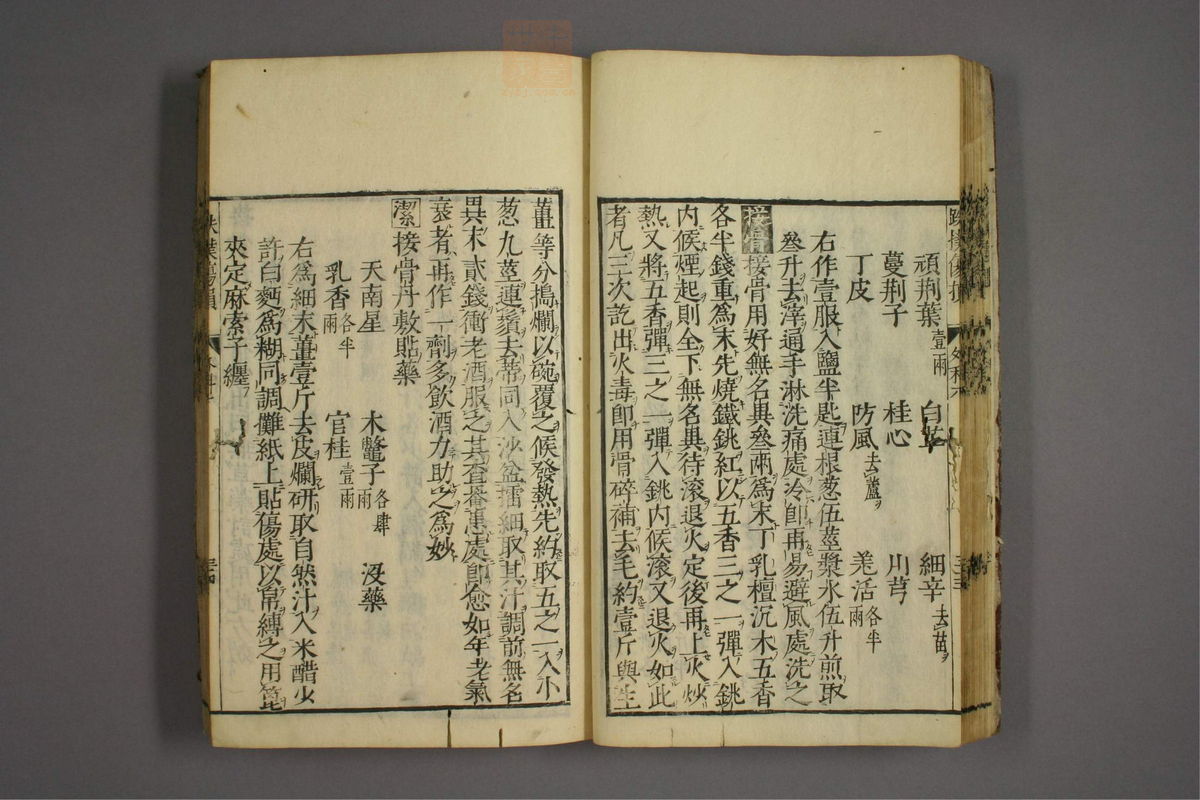 頑荆葉壹兩 白芷 細辛去苗
蔓荆子 桂心 川芎
丁皮 防風去蘆 羗活各半兩
右作壹服入鹽半匙連根葱伍莖漿水伍升煎取
叄升去滓通手淋洗痛處冷卽再易避風處洗之
接骨接骨用好無名異叄兩爲末丁乳檀沉木五香
各半錢重爲末先燒鐵銚紅以五香三之一彈入銚
内候煙起則全下無名異待滚退火定後再上火炒
熱又將五香彈三之一彈入銚内候滚又退火如此
者凡三次訖出火毒卽用骨碎補去毛約壹斤與生
薑等分搗爛以碗覆之候發熱先約取五之一入小
葱九莖連鬚去蒂同入沙盆擂細取其汁調前無名
異末貳錢衝老酒服之其査罯患處卽愈如年老氣
衰者再作一劑多飲酒力助之爲妙
潔接骨丹敷貼藥
天南星 木鼈子各肆兩 没藥
乳香各半兩 官桂壹兩
右爲細末薑壹斤去皮爛研取自然汁入米醋少
許白麪爲糊同調攤紙上貼傷處以帛縛之用箆
夾定麻索子纏